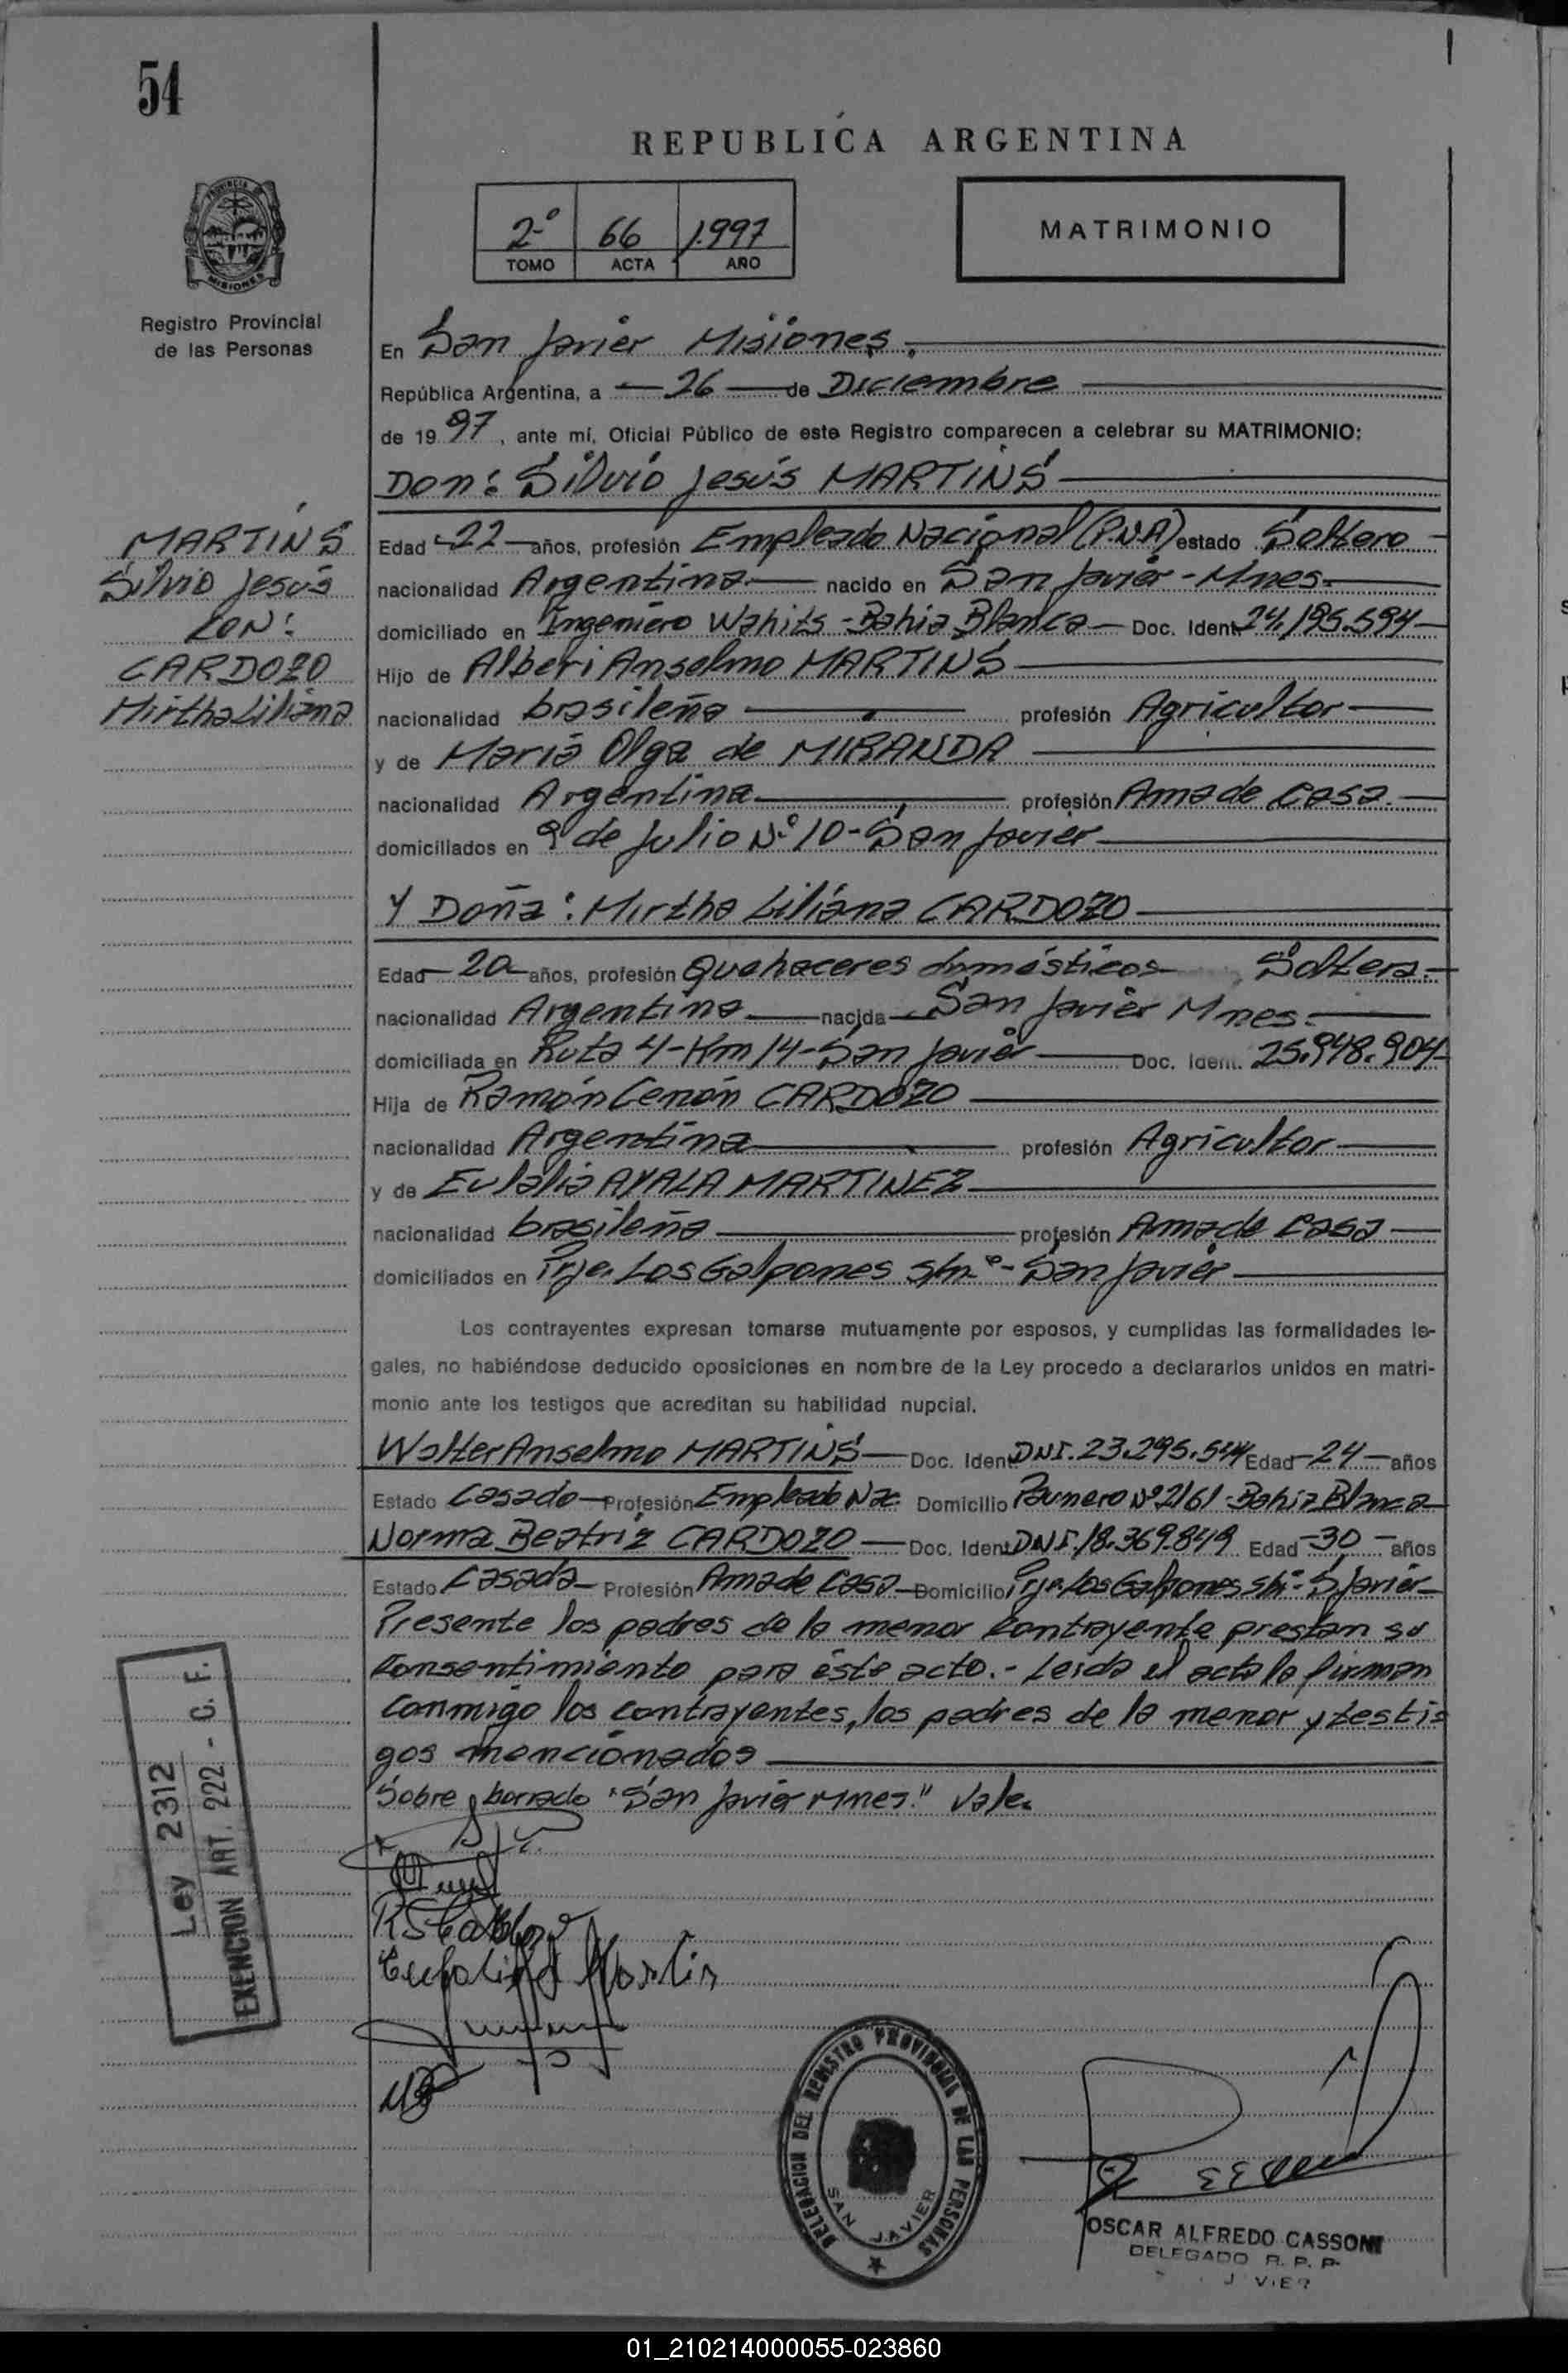 54
REPUBLICA ARGENTINA
PROVINCIA DE
MISIONES
Registro Provincial
de las Personas
2º 66 1.997
TOMO ACTA AÑO
MATRIMONIO
En San Javier Misiones.
República Argentina, a 26 de Diciembre
de 19 97, ante mí, Oficial Público de este Registro comparecen a celebrar su MATRIMONIO:
Don: Silvio Jesús MARTINS
MARTINS
Silvio Jesús
CON:
CARDOZO
Mirtha Liliana
Edad 22 años, profesión Empleado Nacional (P.N.A) estado Soltero
nacionalidad Argentina nacido en San Javier - Mnes.
domiciliado en Ingeniero Wahits - Bahia Blanca Doc. Ident. 24.195.594
Hijo de Alberi Anselmo MARTINS
nacionalidad brasileña profesión Agricultor
y de María Olga de MIRANDA
nacionalidad Argentina profesión Ama de Casa.
domiciliados en 9 de Julio Nº 10 - San Javier
Y Doña: Mirtha Liliana CARDOZO
Edad 20 años, profesión Quehaceres domésticos Soltera.
nacionalidad Argentina nacida San Javier Mnes.
domiciliada en Ruta 4 - Km 14 - San Javier Doc. Ident. 25.948.904
Hija de Ramón Cenón CARDOZO
nacionalidad Argentina profesión Agricultor
y de Eulalia AYALA MARTINEZ
nacionalidad brasileña profesión Ama de Casa
domiciliados en Prje. Los Galpones s/nº - San Javier
Los contrayentes expresan tomarse mutuamente por esposos, y cumplidas las formalidades le-
gales, no habiéndose deducido oposiciones en nombre de la Ley procedo a declararlos unidos en matri-
monio ante los testigos que acreditan su habilidad nupcial.
Walter Anselmo MARTINS Doc. Ident. DNI. 23.295.544 Edad 24 años
Estado Casado Profesión Empleado Nac. Domicilio Paunero Nº 2161 - Bahia Blanca
Norma Beatriz CARDOZO Doc. Ident. DNI. 18.369.849 Edad 30 años
Estado Casada Profesión Ama de Casa Domicilio Prje. Los Galpones s/nº - S. Javier
Presente los padres de la menor contrayente prestan su
consentimiento para éste acto. - Leida el acta la firman
conmigo los contrayentes, los padres de la menor y testi-
gos mencionados
Sobre borrado "San Javier Mnes." Vale.
Ley 2312
EXENCION ART. 222 - C. F.
DELEGACION DEL REGISTRO PROVINCIAL DE LAS PERSONAS
SAN JAVIER
OSCAR ALFREDO CASSONI
DELEGADO R. P. P.
01_210214000055-023860